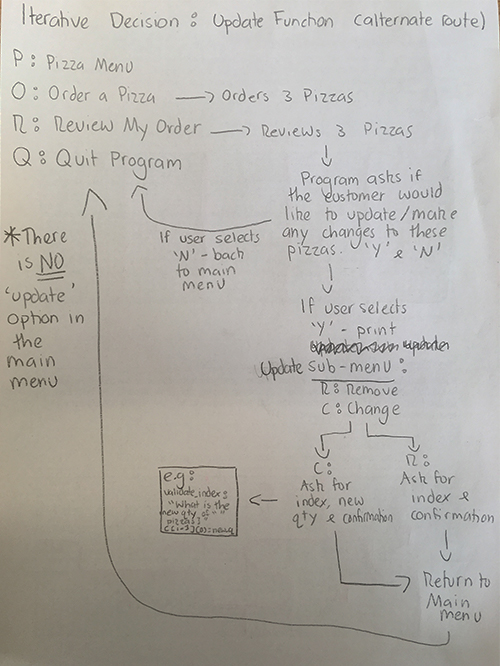 Iterative Decision : Update Function (alternate route)
P : Pizza Menu
O : Order a Pizza → Orders 3 Pizzas
R : Review My Order → Reviews 3 Pizzas
Q : Quit Program
Program asks if
the customer would
like to update/make
any changes to these
pizzas. 'Y' & 'N'
If user selects
'N' - back
to main
menu
*There
is NO
'update'
option in
the
main
menu
If user selects
'Y' - print
Update Sub-menu :
R : Remove
C : Change
C :
Ask for
index, new
qty & confirmation
R :
Ask for
index &
confirmation
e.g :
validate_index :
"What is the
new qty of"
Return to
Main
menu